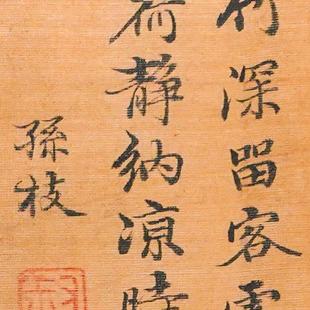 竹深留客處
荷静納凉時
孫枝